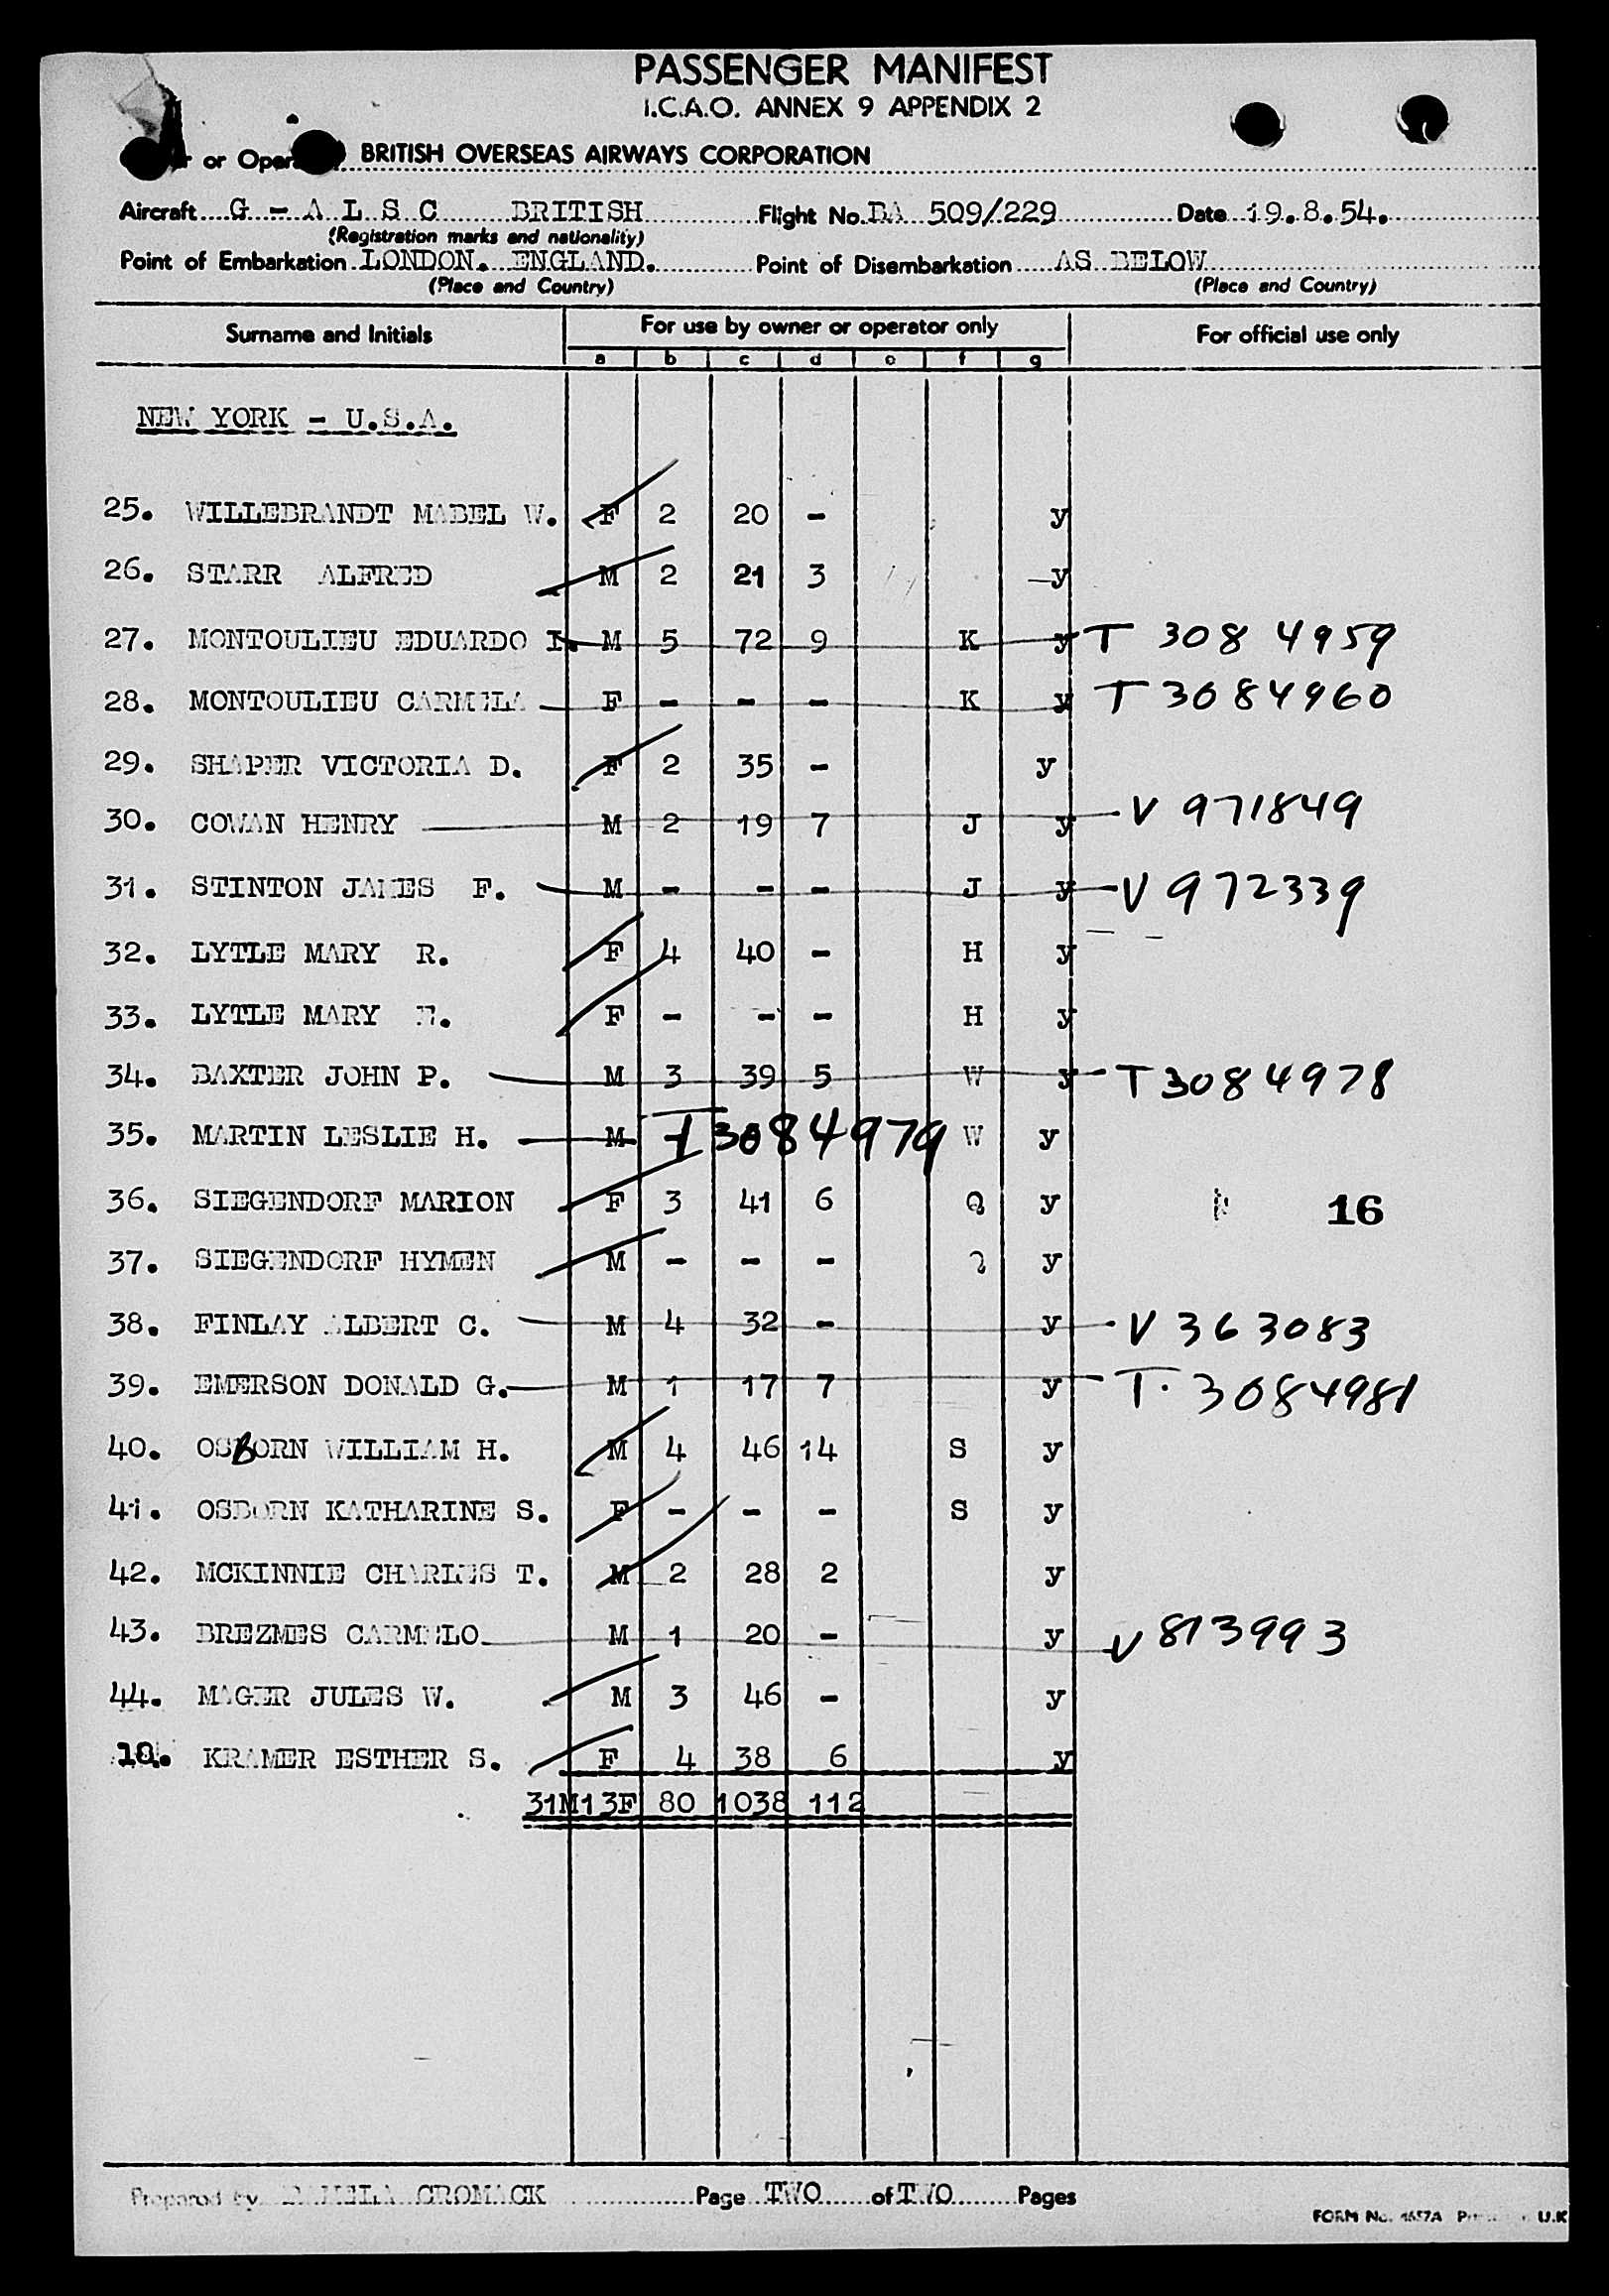 PASSENGER MANIFEST
I.C.A.O. ANNEX 9 APPENDIX 2
or BRITISH OVERSEAS AIRWAYS CORPORATION
Aircraft G - A L S C BRITISH Flight No. BA 509/229 Date 19.8.54.
(Registration marks and nationality)
Point of Embarkation LONDON. ENGLAND. Point of Disembarkation AS BELOW
(Place and Country) (Place and Country)
Surname and Initials For use by owner or operator only For official use only
a b c d e f g
NEW YORK - U.S.A.
25. WILLEBRANDT MABEL W. F 2 20 - y
26. STARR ALFRED M 2 21 3 y
27. MONTOULIEU EDUARDO I. M 5 72 9 K y T 3084959
28. MONTOULIEU CARMELA F - - - K y T 3084960
29. SHAPER VICTORIA D. F 2 35 - y
30. COWAN HENRY M 2 19 7 J y V 971849
31. STINTON JAMES F. M - - - J y V 972339
32. LYTLE MARY R. F 4 40 - H y
33. LYTLE MARY F - - - H y
34. BAXTER JOHN P. M 3 39 5 W y T3084978
35. MARTIN LESLIE H. M T3084979 W y
36. SIEGENDORF MARION F 3 41 6 Q y 16
37. SIEGENDORF HYMEN M - - - Q y
38. FINLAY ALBERT C. M 4 32 - y V 363083
39. EMERSON DONALD G. M 1 17 7 y T. 3084981
40. OSBORN WILLIAM H. M 4 46 14 S y
41. OSBORN KATHARINE S. F - - - S y
42. MCKINNIE CHARLES T. M 2 28 2 y
43. BREZMES CARMELO M 1 20 - y V 813993
44. MAGER JULES W. M 3 46 - y
18. KRAMER ESTHER S. F 4 38 6 y
31M13F 80 1038 112
Prepared by CROMACK Page TWO of TWO Pages
FORM No. U.K